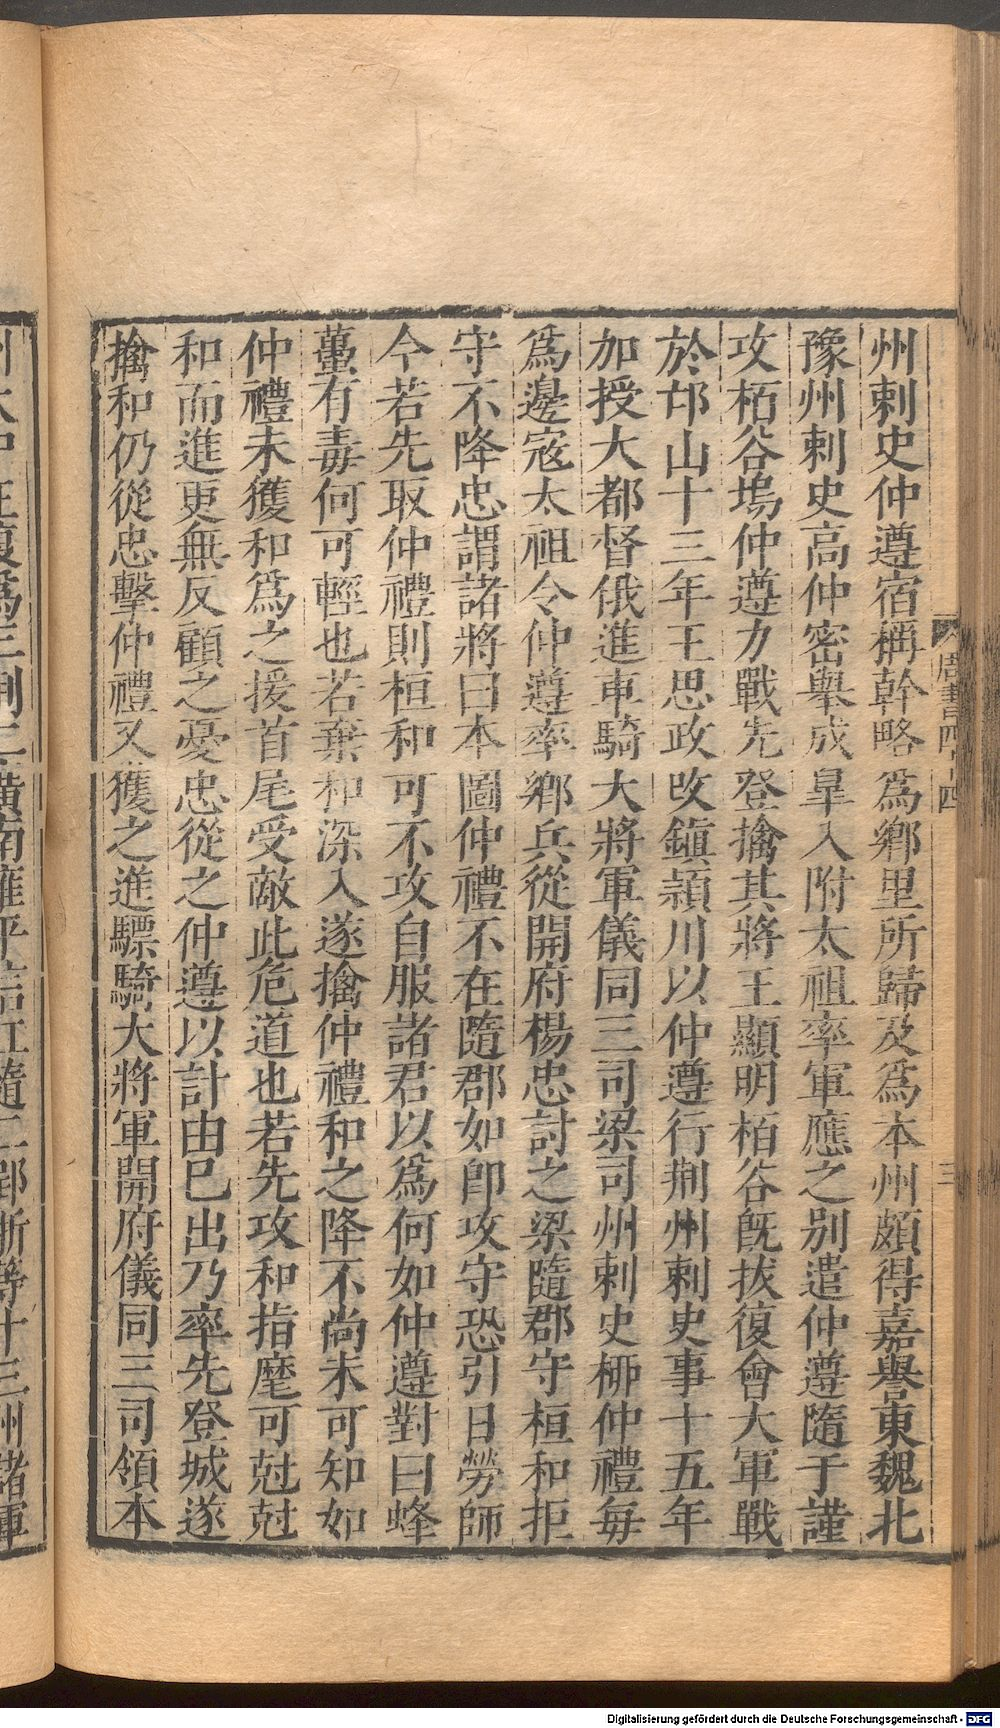 州刺史仲遵宿稱幹略爲鄉里所歸及爲本州頗得嘉譽東魏北
豫州刺史高仲密舉成臯入附太祖率軍應之别遣仲遵隨于謹
攻栢谷塢仲遵力戰先登擒其將王顯明栢谷旣拔復會大軍戰
於邙山十三年王思政改鎮潁川以仲遵行荆州刺史事十五年
加授大都督俄進車騎大將軍儀同三司梁司州刺史柳仲禮每
爲邊寇太祖令仲遵率鄉兵從開府楊忠討之梁隨郡守桓和拒
守不降忠謂諸將曰本圖仲禮不在隨郡如卽攻守恐引日勞師
今若先取仲禮則桓和可不攻自服諸君以爲何如仲遵對曰蜂
蠆有毒何可輕也若棄和深入遂擒仲禮和之降不尚未可知如
仲禮未獲和爲之援首尾受敵此危道也若先攻和指麾可尅尅
和而進更無反顧之憂忠從之仲遵以計由已出乃率先登城遂
擒和仍從忠擊仲禮又獲之進驃騎大將軍開府儀同三司領本
周書四十四
三
Digitalisierung gefördert durch die Deutsche Forschungsgemeinschaft - DFG